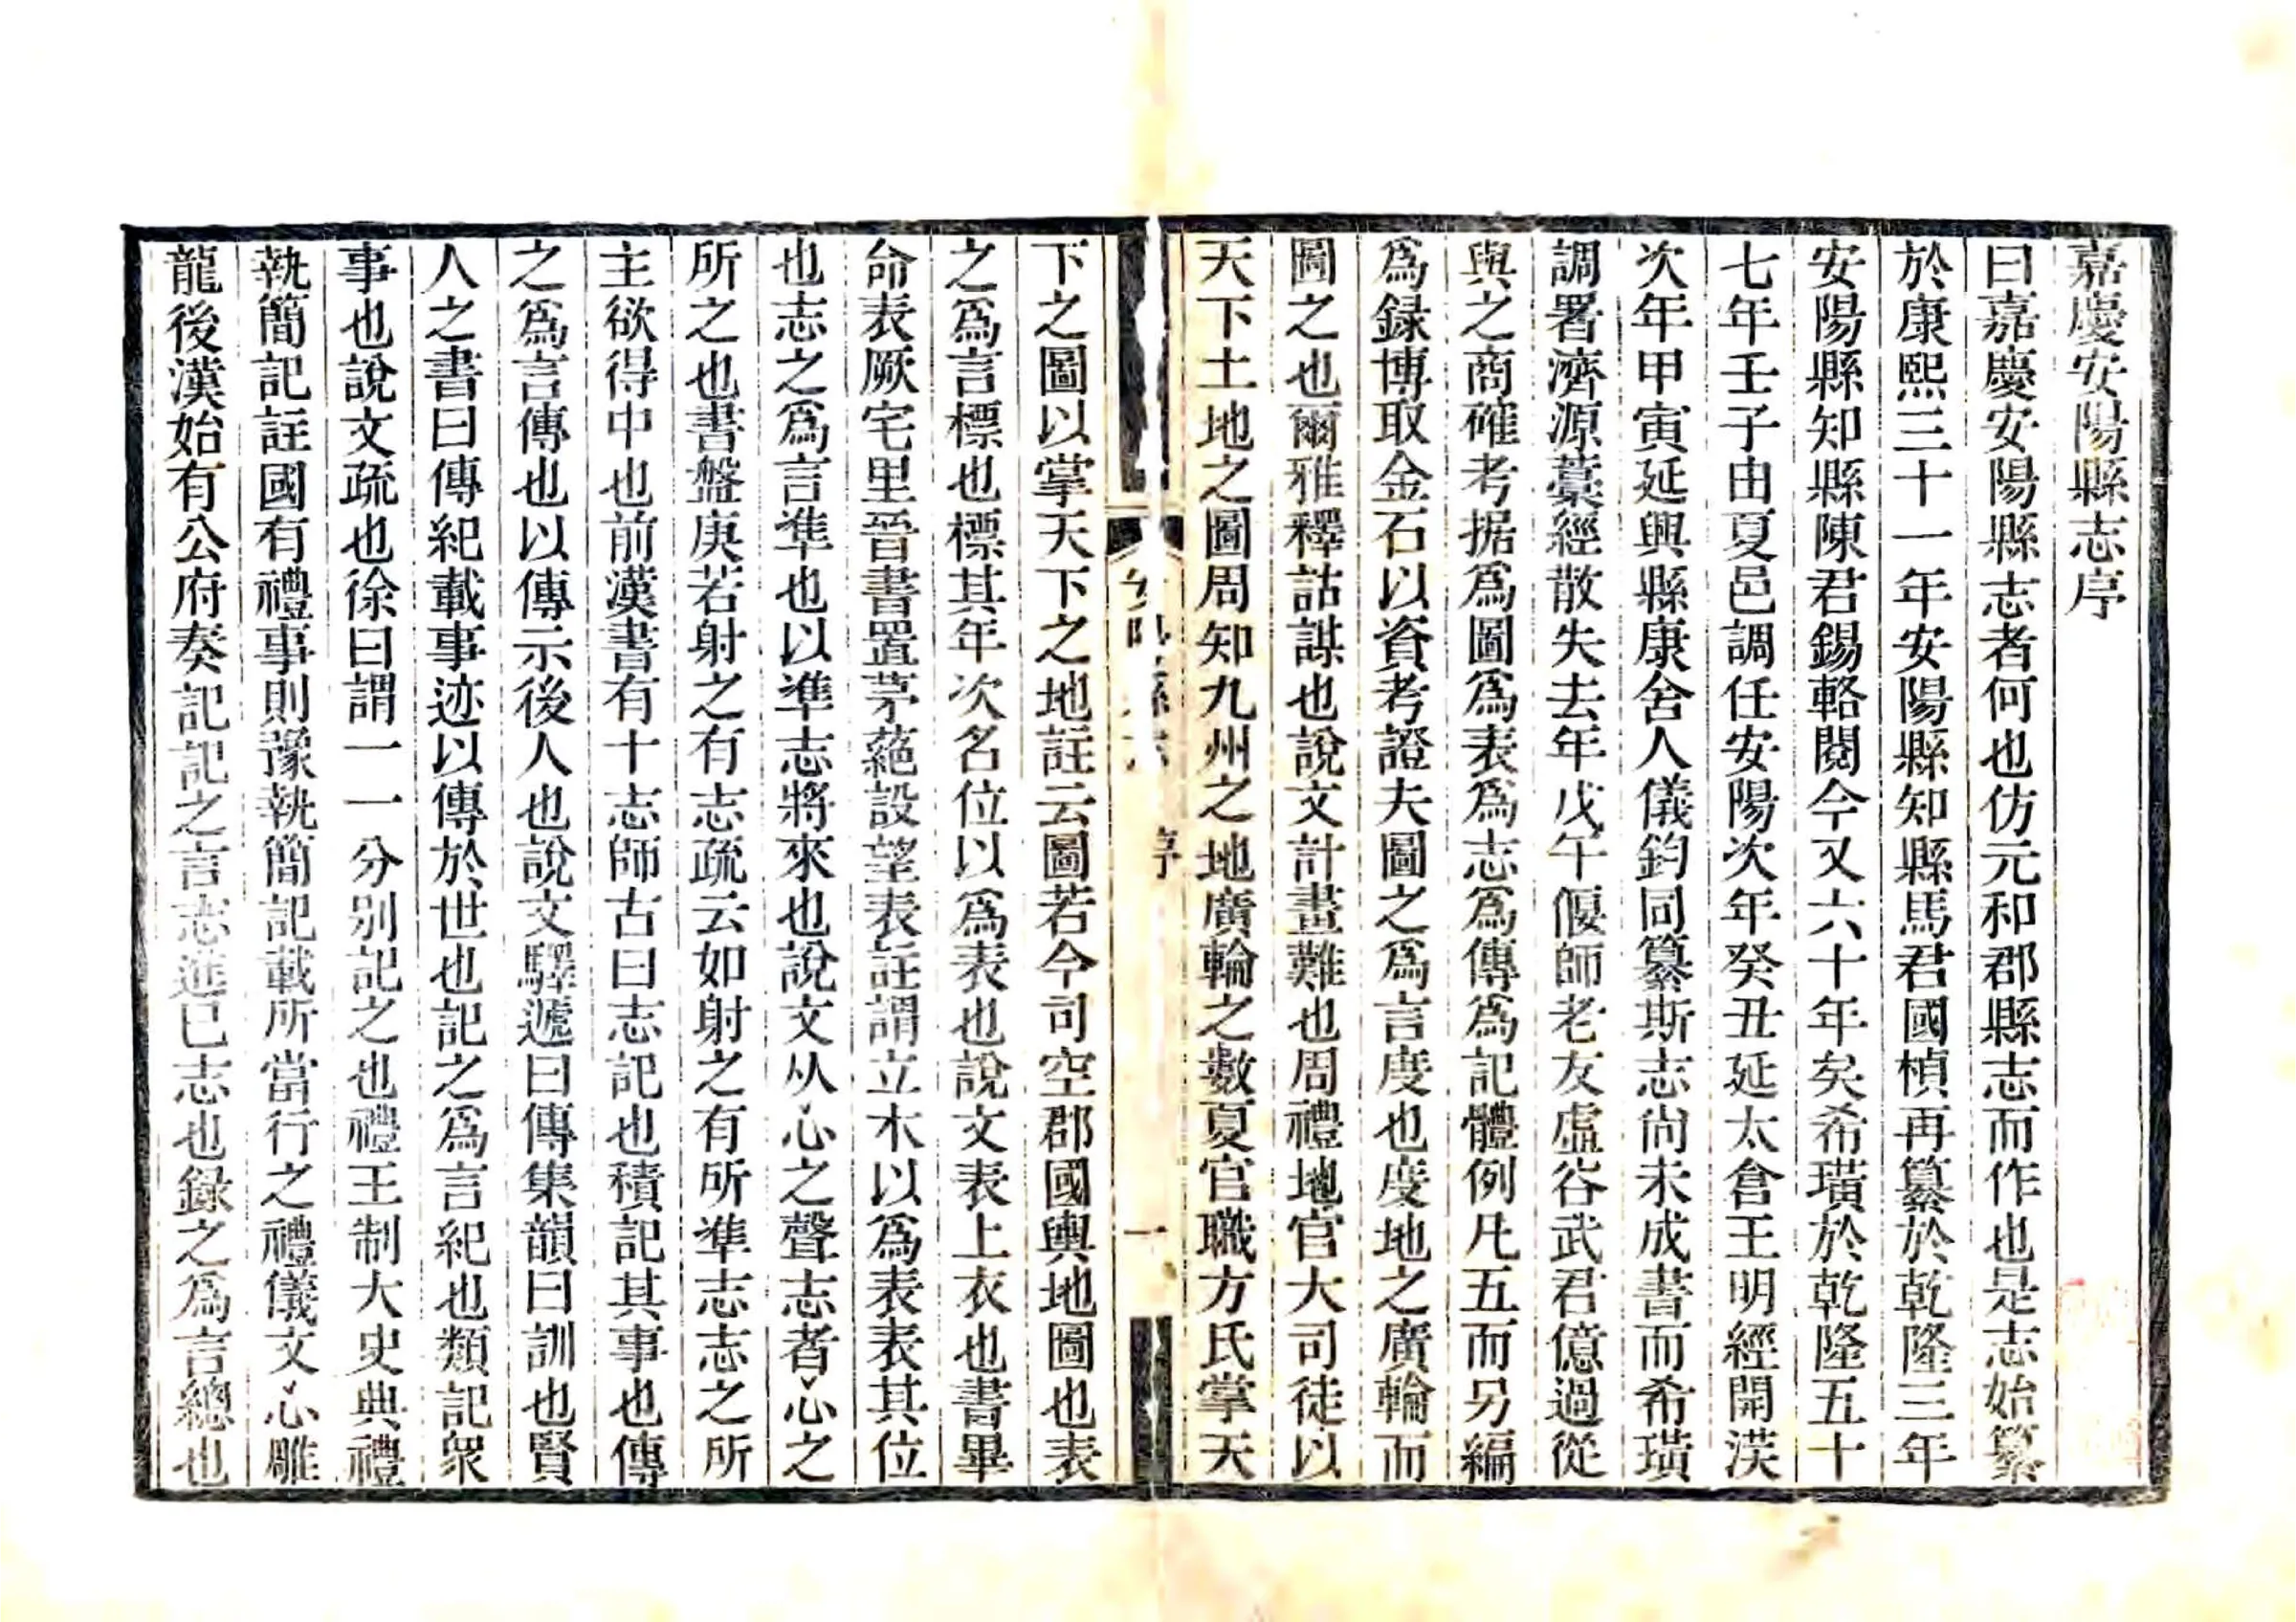 嘉慶安陽縣志序
曰嘉慶安陽縣志者何也仿元和郡縣志而作也是志始纂
於康熙三十一年安陽縣知縣馬君國楨再纂於乾隆三年
安陽縣知縣陳君錫輅閱今又六十年矣希璜於乾隆五十
七年壬子由夏邑調任安陽次年癸丑延太倉王明經開渶
次年甲寅延興縣康舍人儀鈞同纂斯志尚未成書而希璜
調署濟源藁經散失去年戊午偃師老友虛谷武君億過從
與之商確考据爲圖爲表爲志爲傳爲記體例凡五而另編
爲録博取金石以資考證夫圖之爲言度也度地之廣輪而
圖之也爾雅釋詁謀也說文計畫難也周禮地官大司徒以
天下土地之圖周知九州之地廣輪之數夏官職方氏掌天
序
一
下之圖以掌天下之地註云圖若今司空郡國輿地圖也表
之爲言標也標其年次名位以爲表也說文表上衣也書畢
命表厥宅里晉書置茅蕝設望表註謂立木以爲表表其位
也志之爲言準也以準志將來也說文从心之聲志者心之
所之也書盤庚若射之有志疏云如射之有所準志志之所
主欲得中也前漢書有十志師古曰志記也積記其事也傳
之爲言傳也以傳示後人也說文驛遞曰傳集韻曰訓也賢
人之書曰傳紀載事迹以傳於世也記之爲言紀也類記衆
事也說文疏也徐曰謂一一分別記之也禮王制大史典禮
執簡記註國有禮事則豫執簡記載所當行之禮儀文心雕
龍後漢始有公府奏記記之言志進已志也録之爲言總也